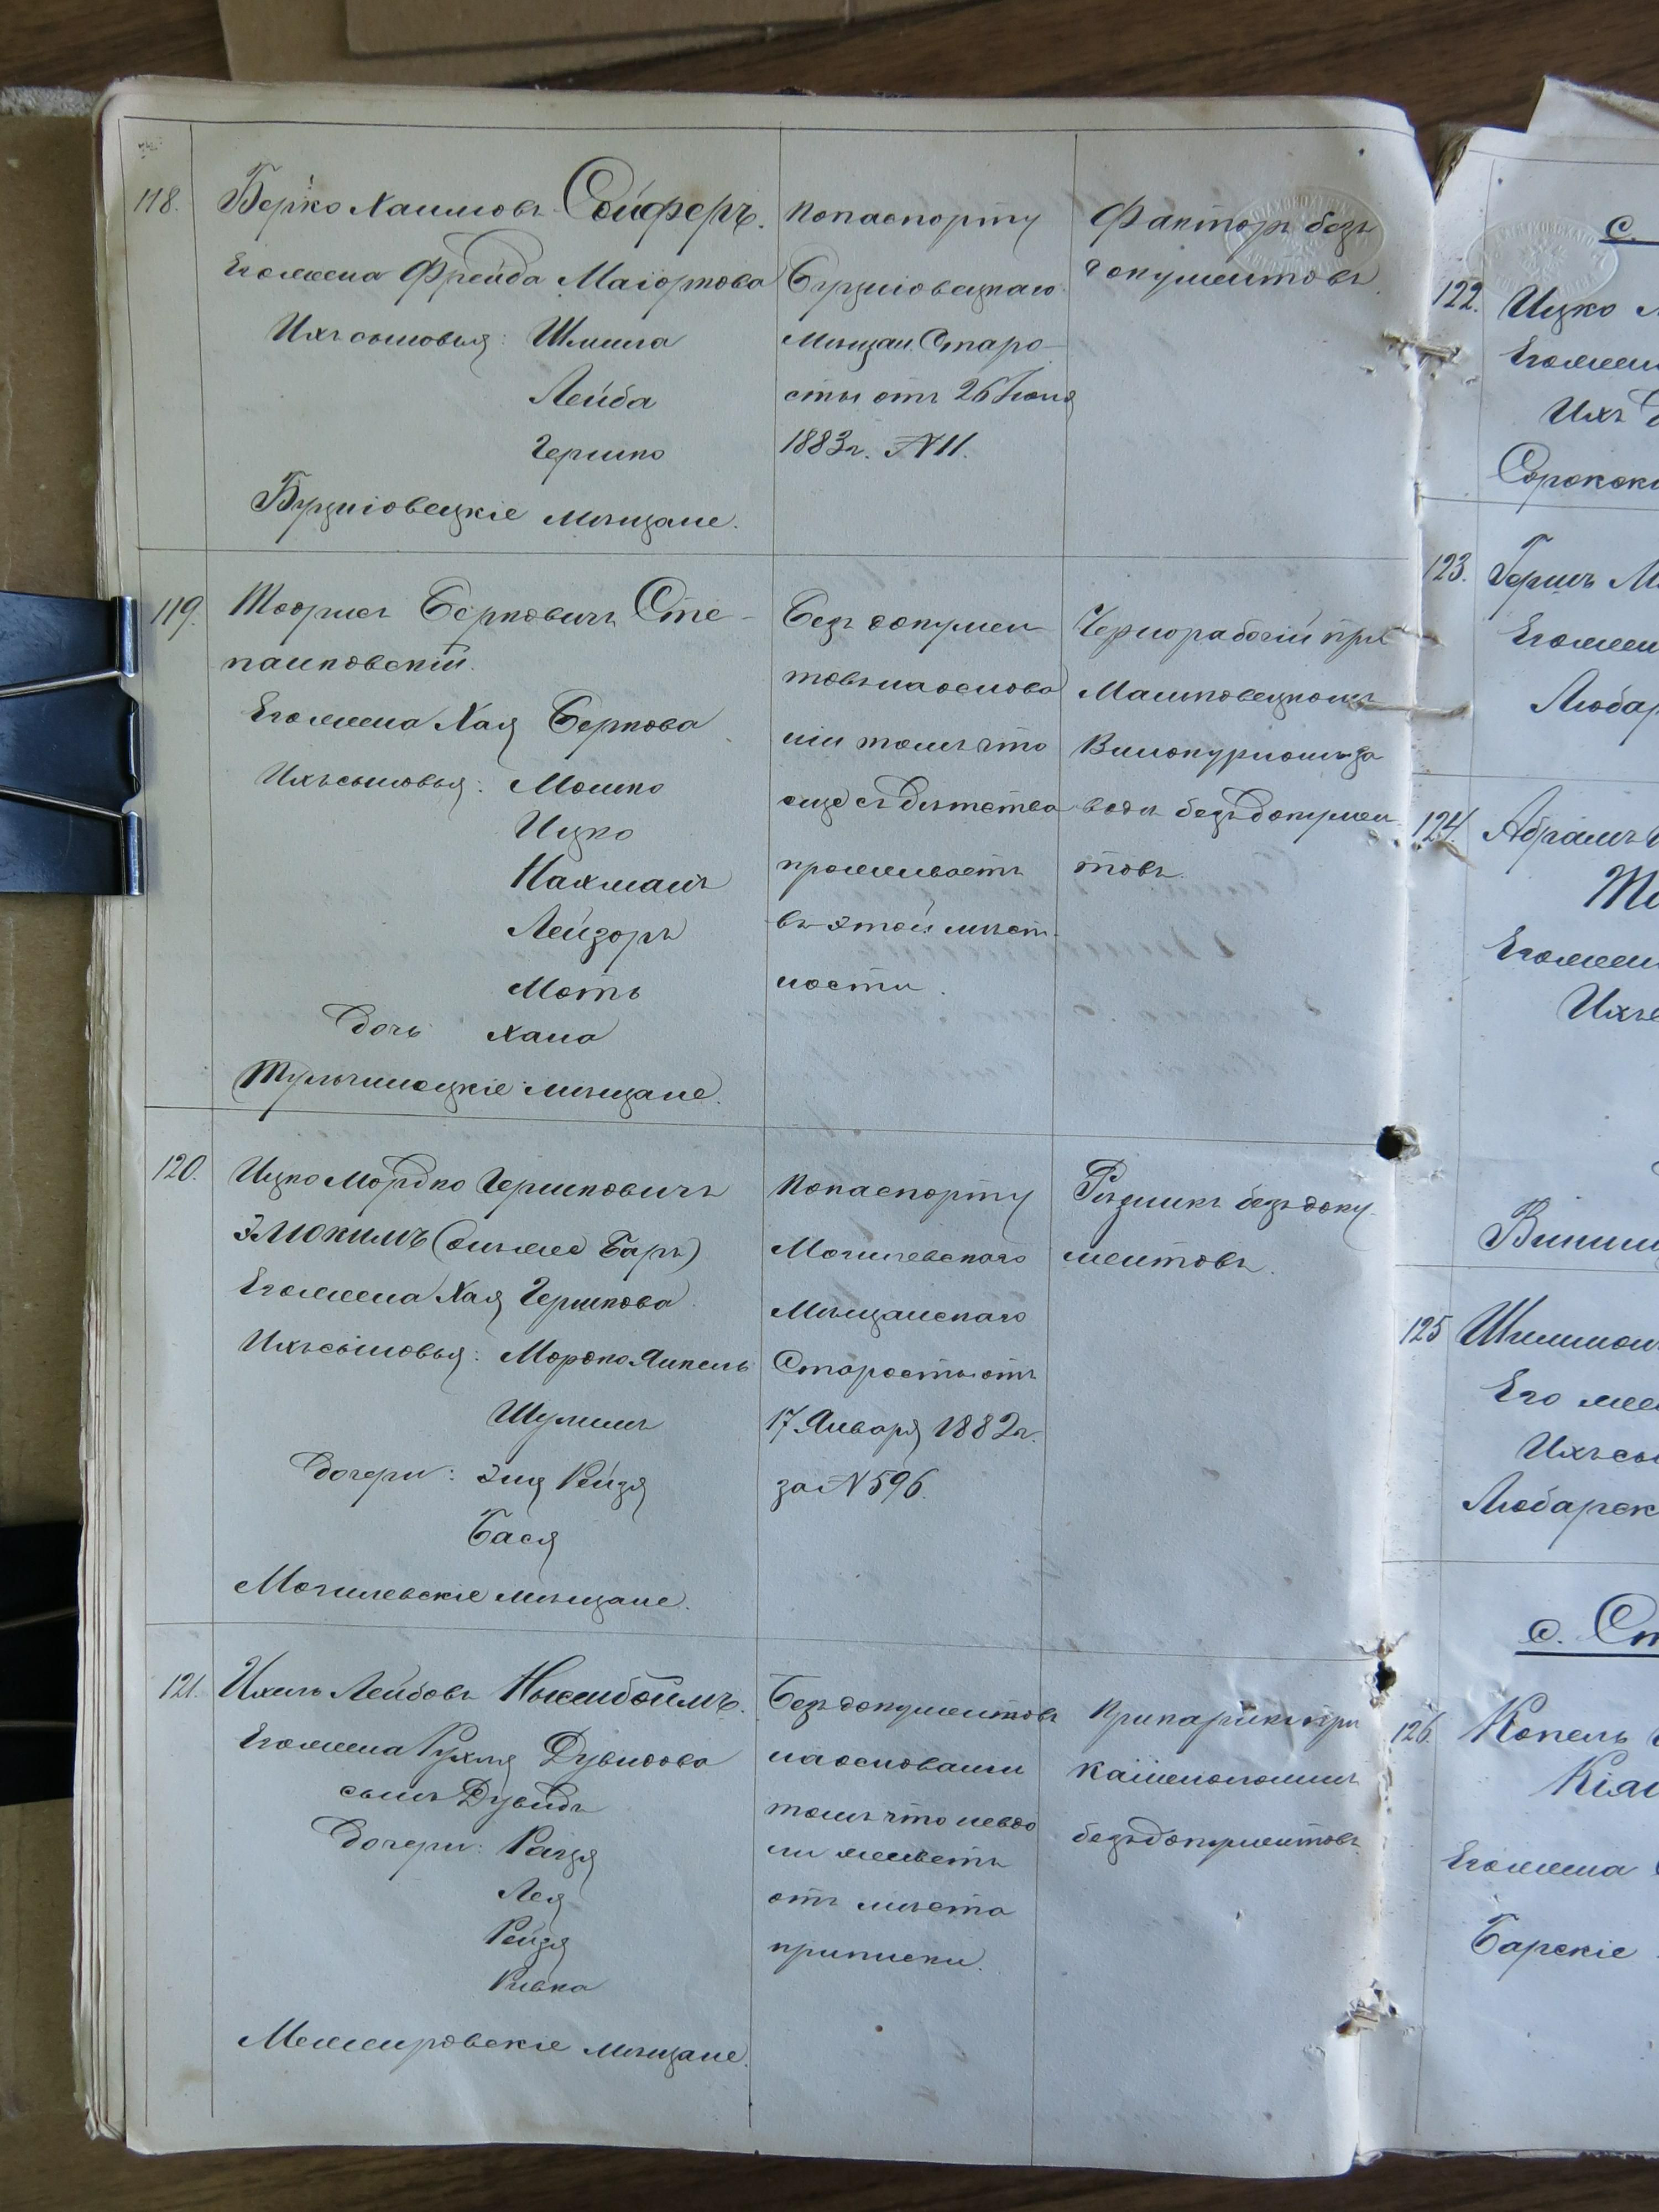 118.
Берко Хаимовъ Сойферъ.
Его жена Фрейда Маіоркова
Ихъ сыновья: Шлиома
Лейба
Гершко
Буцніовецкіе мѣщане.
По паспорту
Буцніовецкаго
Мѣщан. Старо-
сты отъ 26 Іюня
1883 г. № 11.
Факторъ безъ
документовъ.
119.
Беркович Сте-
панковскій.
Его жена Хая Беркова
Ихъ сыновья: Мошко
Ицко
Нахманъ
Лейзоръ
Моть
Дочь Хана
Тульчинецкіе мѣщане.
Безъ докумен
товъ на основа
ніи томъ что
еще съ дѣтства
проживаетъ
въ этой мѣст-
ности.
Чернорабочій при
Машковецкомъ
Винокурномъ за
водѣ безъ докумен
товъ.
120.
Ицко Мордко Гершковичъ
Элюкимъ (онъ же Баръ)
Его жена Хая Гершкова
Ихъ сыновья: Мордко Янкель
Шулимъ
Дочери: Эня Рейзя
Бася
Могилевскіе мѣщане.
По паспорту
Могилевскаго
Мѣщанскаго
Старосты отъ
17 Января 1882 г.
за № 596.
Рѣзникъ безъ доку-
ментовъ.
121.
Ихель Лейбовъ Нысенбоймъ.
Его жена Рухля Дувидова
сынъ Дувидъ
Дочери:
Лея
Рейзя
Ривка
Межировскіе мѣщане.
Безъ документовъ
на основаніи
томъ что невда
ли живетъ
отъ мѣста
приписки.
при
безъ документовъ.
с.
122. Ицко
Его жена
Ихъ
123. Гершъ
Его жена
124. Абрамъ
Его жена
125
Его
Ихъ
с.
126. Копель
Его жена
Барскіе